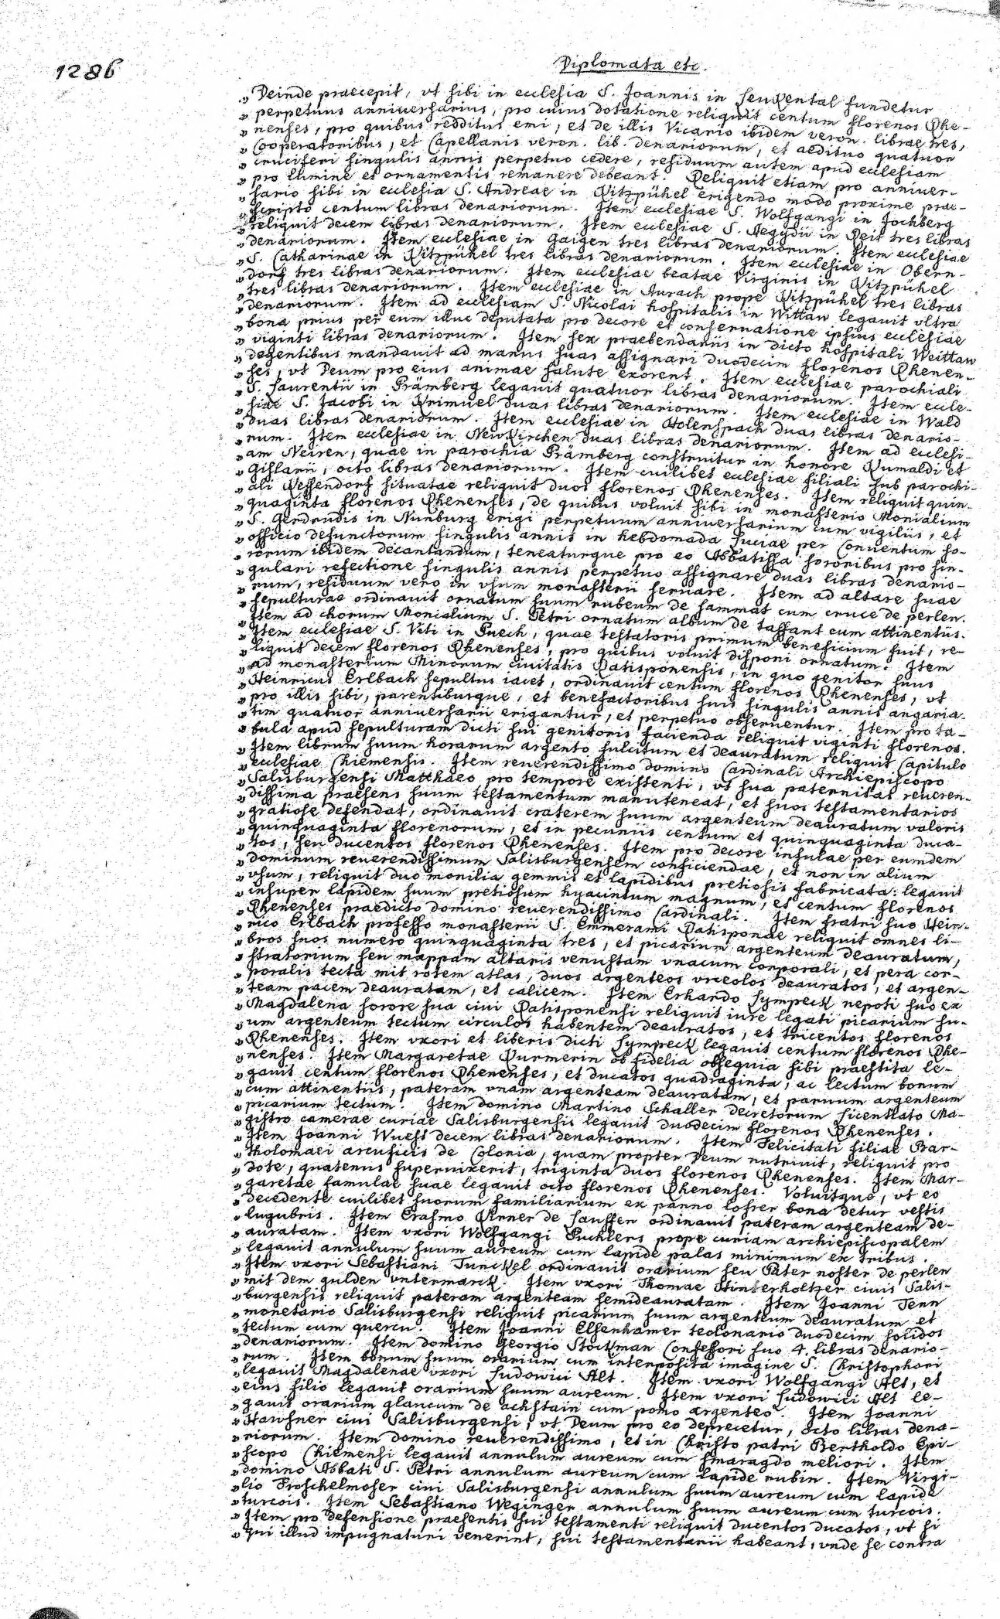 1286
Diplomata etc.
„ Deinde praecepit, vt sibi in ecclesia S. Joannis in Leukental fundetur
„ perpetuus anniversarius, pro cuius dotatione reliquit centum florenos Rhe-
„ nenses, pro quibus redditus emi, et de illis Vicario ibidem veron. librae tres,
„ Cooperatoribus, et Capellanis veron. lib. denariorum, et aedituo quatuor
„ cruciferi singulis annis perpetuo cedere, residuum autem apud ecclesiam
„ pro lumine et ornamentis remanere debeant. Reliquit etiam pro anniver-
„ sario sibi in ecclesia S. Andreae in Kitzpühel erigendo modo proxime prae-
„ scripto centum libras denariorum. Item ecclesiae S. Wolfgangi in Jochberg
„ reliquit decem libras denariorum. Item ecclesiae S. Aegydii in Reit tres libras
„ denariorum. Item ecclesiae in Gaigen tres libras denariorum. Item ecclesiae
„ S. Catharinae in Kitzpühel tres libras denariorum. Item ecclesiae in Obern-
„ dorf tres libras denariorum. Item ecclesiae beatae Virginis in Kitzpühel
„ tres libras denariorum. Item ecclesiae in Aurach prope Kitzpühel tres libras
„ denariorum. Item ad ecclesiam S. Nicolai hospitalis in Wittaw legauit vltra
„ bona prius per eum illuc deputata pro decore et conseruatione ipsius ecclesiae
„ viginti libras denariorum. Item sex praebendariis in dicto hospitali Weittaw
„ degentibus mandauit ad manus suas assignari duodecim florenos Rhenen-
„ ses, vt Deum pro eius animae salute exorent. Item ecclesiae parochiali
„ S. Laurentii in Prämberg legauit quatuor libras denariorum. Item eccle-
„ siae S. Jacobi in duas libras denariorum. Item ecclesiae in Wald
„ duas libras denariorum. Item ecclesiae in duas libras denario-
„ rum. Item ecclesiae in Newkirchen duas libras denariorum. Item ad ecclesi-
„ am Neiren, quae in parochia Prämberg construitur in honore Rumaldi et
„ Gislarii, octo libras denariorum. Item cuilibet ecclesiae filiali sub parochi-
„ ali Vessendorf situatae reliquit duos florenos Rhenenses. Item reliquit quin-
„ quaginta florenos Rhenenses, de quibus voluit sibi in monasterio Monialium
„ S. Gerdrudis in Nunburg erigi perpetuum anniversarium cum vigiliis, et
„ officio defunctorum singulis annis in hebdomada Luciae per Conuentum so-
„ rorum ibidem decantandum, teneaturque pro eo Abbatissa sororibus pro sin-
„ gulari refectione singulis annis perpetuo assignare duas libras denario-
„ rum, residuum vero in vsum monasterii seruare. Item ad altare suae
„ sepulturae ordinauit ornatum suum rubeum de sammat cum cruce de perlen.
„ Item ad chorum Monialium S. Petri ornatum album de taffant cum attinentiis.
„ Item ecclesiae S. Viti in Puech, quae testatoris primum beneficium fuit, re-
„ liquit decem florenos Rhenenses, pro quibus voluit disponi ornatum. Item
„ ad monasterium Minorum ciuitatis Ratisponensis, in quo genitor suus
„ Heinricus Erlbach sepultus iacet, ordinauit centum florenos Rhenenses, vt
„ pro illis sibi, parentibusque, et benefactoribus suis singulis annis angaria-
„ tim quatuor anniversarii erigantur, et perpetuo obseruentur. Item pro ta-
„ bula apud sepulturam dicti sui genitoris facienda reliquit viginti florenos.
„ Item librum suum horarum argento fulcitum et deauratum reliquit Capitulo
„ ecclesiae Chiemensis. Item reuerendissimo domino Cardinali Archiepiscopo
„ Salisburgensi Matthaeo pro tempore existenti, vt sua paternitas reueren-
„ dissima praesens suum testamentum manuteneat, et suos testamentarios
„ gratiose defendat, ordinauit craterem suum argenteum deauratum valoris
„ quinquaginta florenorum, et in pecuniis centum et quinquaginta duca-
„ tos, seu ducentos florenos Rhenenses. Item pro decore insulae per eumdem
„ dominum reuerendissimum Salisburgensem conficiendae, et non in alium
„ vsum, reliquit duo monilia gemmis et lapidibus pretiosis fabricata: legauit
„ insuper lapidem suum pretiosum hyacintum magnum, et centum florenos
„ Rhenenses praedicto domino reuerendissimo Cardinali. Item fratri suo Hein-
„ rico Erlbach professo monasterii S. Emmerami Ratisponae reliquit omnes li-
„ bros suos numero quinquaginta tres, et picarium argenteum deauratum,
„ stratorium seu mappam altaris venustam vnacum corporali, et pera cor-
„ poralis tecta mit rotem atlas, duos argenteos vrceolos deauratos, et argen-
„ team pacem deauratam, et calicem. Item Erhardo Lympeck nepoti suo ex
„ Magdalena sorore sua ciui Ratisponensi reliquit iure legati picarium su-
„ um argenteum tectum circulos habentem deauratos, et tricentos florenos
„ Rhenenses. Item vxori et liberis dicti Lympeck legauit centum florenos Rhe-
„ nenses. Item Margaretae Durmerin ob fidelia obsequia sibi praestita le-
„ gauit centum florenos Rhenenses, et ducatos quadraginta, ac lectum bonum
„ cum attinentiis, pateram vnam argenteam deauratam, et paruum argenteum
„ picarium tectum. Item domino Martino Schaller decretorum licentiato Ma-
„ gistro camerae curiae Salisburgensis legauit duodecim florenos Rhenenses.
„ Item Joanni Wuest decem libras denariorum. Item Felicitati filiae Bar-
„ tholomaei arcuficis de Colonia, quam propter Deum nutriuit, reliquit pro
„ dote, quatenus superuixerit, triginta duos florenos Rhenenses. Item Mar-
„ garetae famulae suae legauit octo florenos Rhenenses. Voluitque, vt eo
„ decedente cuilibet suorum familiarium ex panno lofrer bona detur vestis
„ lugubris. Item Erasmo de Lauffen ordinauit pateram argenteam de-
„ auratam. Item vxori Wolfgangi Puchlers prope curiam archiepiscopalem
„ legauit annulum suum aureum cum lapide palas minimum ex tribus.
„ Item vxori Sebastiani Tunckel ordinauit orarium seu Pater noster de perlen
„ mit dem gulden vntermarck. Item vxori Thomae Hinderholtzer ciuis Salis-
„ burgensis reliquit pateram argenteam semideauratam. Item Joanni Tenn
„ monetario Salisburgensi reliquit picarium suum argenteum deauratum et
„ tectum cum quercu. Item Joanni Elsenhamer teolonario duodecim solidos
„ denariorum. Item domino Georgio Stockman Confessori suo 4. libras denario-
„ rum. Item bonum suum orarium cum interposita imagine S. Christophori
„ legauit Magdalenae vxori Ludowici Alt. Item vxori Wolfgangi Alt, et
„ eius filio legauit orarium suum aureum. Item vxori Ludowici Alt le-
„ gauit orarium glaucum de achstain cum pomo argenteo. Item Joanni
„ Hawsner ciui Salisburgensi, vt Deum pro eo deprecetur, octo libras dena-
„ riorum. Item domino reuerendissimo, et in Christo patri Bertholdo Epi-
„ scopo Chiemensi legauit annulum aureum cum smaragdo meliori. Item
„ domino Abbati S. Petri annulum aureum cum lapide rubin. Item Virgi-
„ lio Froschelmoser ciui Salisburgensi annulum suum aureum cum lapide
„ turcois. Item Sebastiano Weginger annulum suum aureum cum turcois.
„ Item pro defensione praesentis sui testamenti reliquit ducentos ducatos, vt si
„ qui illud impugnaturi venerint, sui testamentarii habeant, vnde se contra